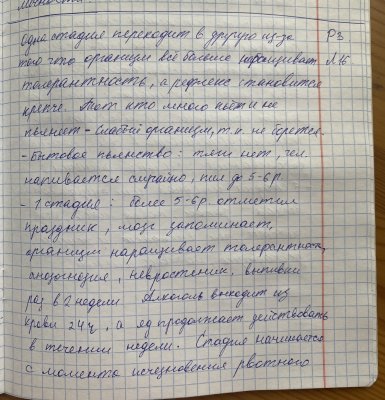 Одна стадия переходит в другую из-за Р3
того что организм всё больше наращивает Л16
толерантность, а рефлекс становится
крепче. Тот кто много пьёт и не
пьянеет - слабый организм, т.к. не борется.
- Бытовое пьянство: тяги нет, чел.
напивается случайно, пил до 5-6 р.
- 1 стадия: более 5-6 р. отметил
праздник, мозг запоминает,
организм наращивает толерантность,
анозогнозия, неврастеник, выпивки
раз в 2 недели Алкоголь выходит из
крови 24 ч, а яд продолжает действовать
в течении недели. Стадия начинается
с момента исчезновения рвотного